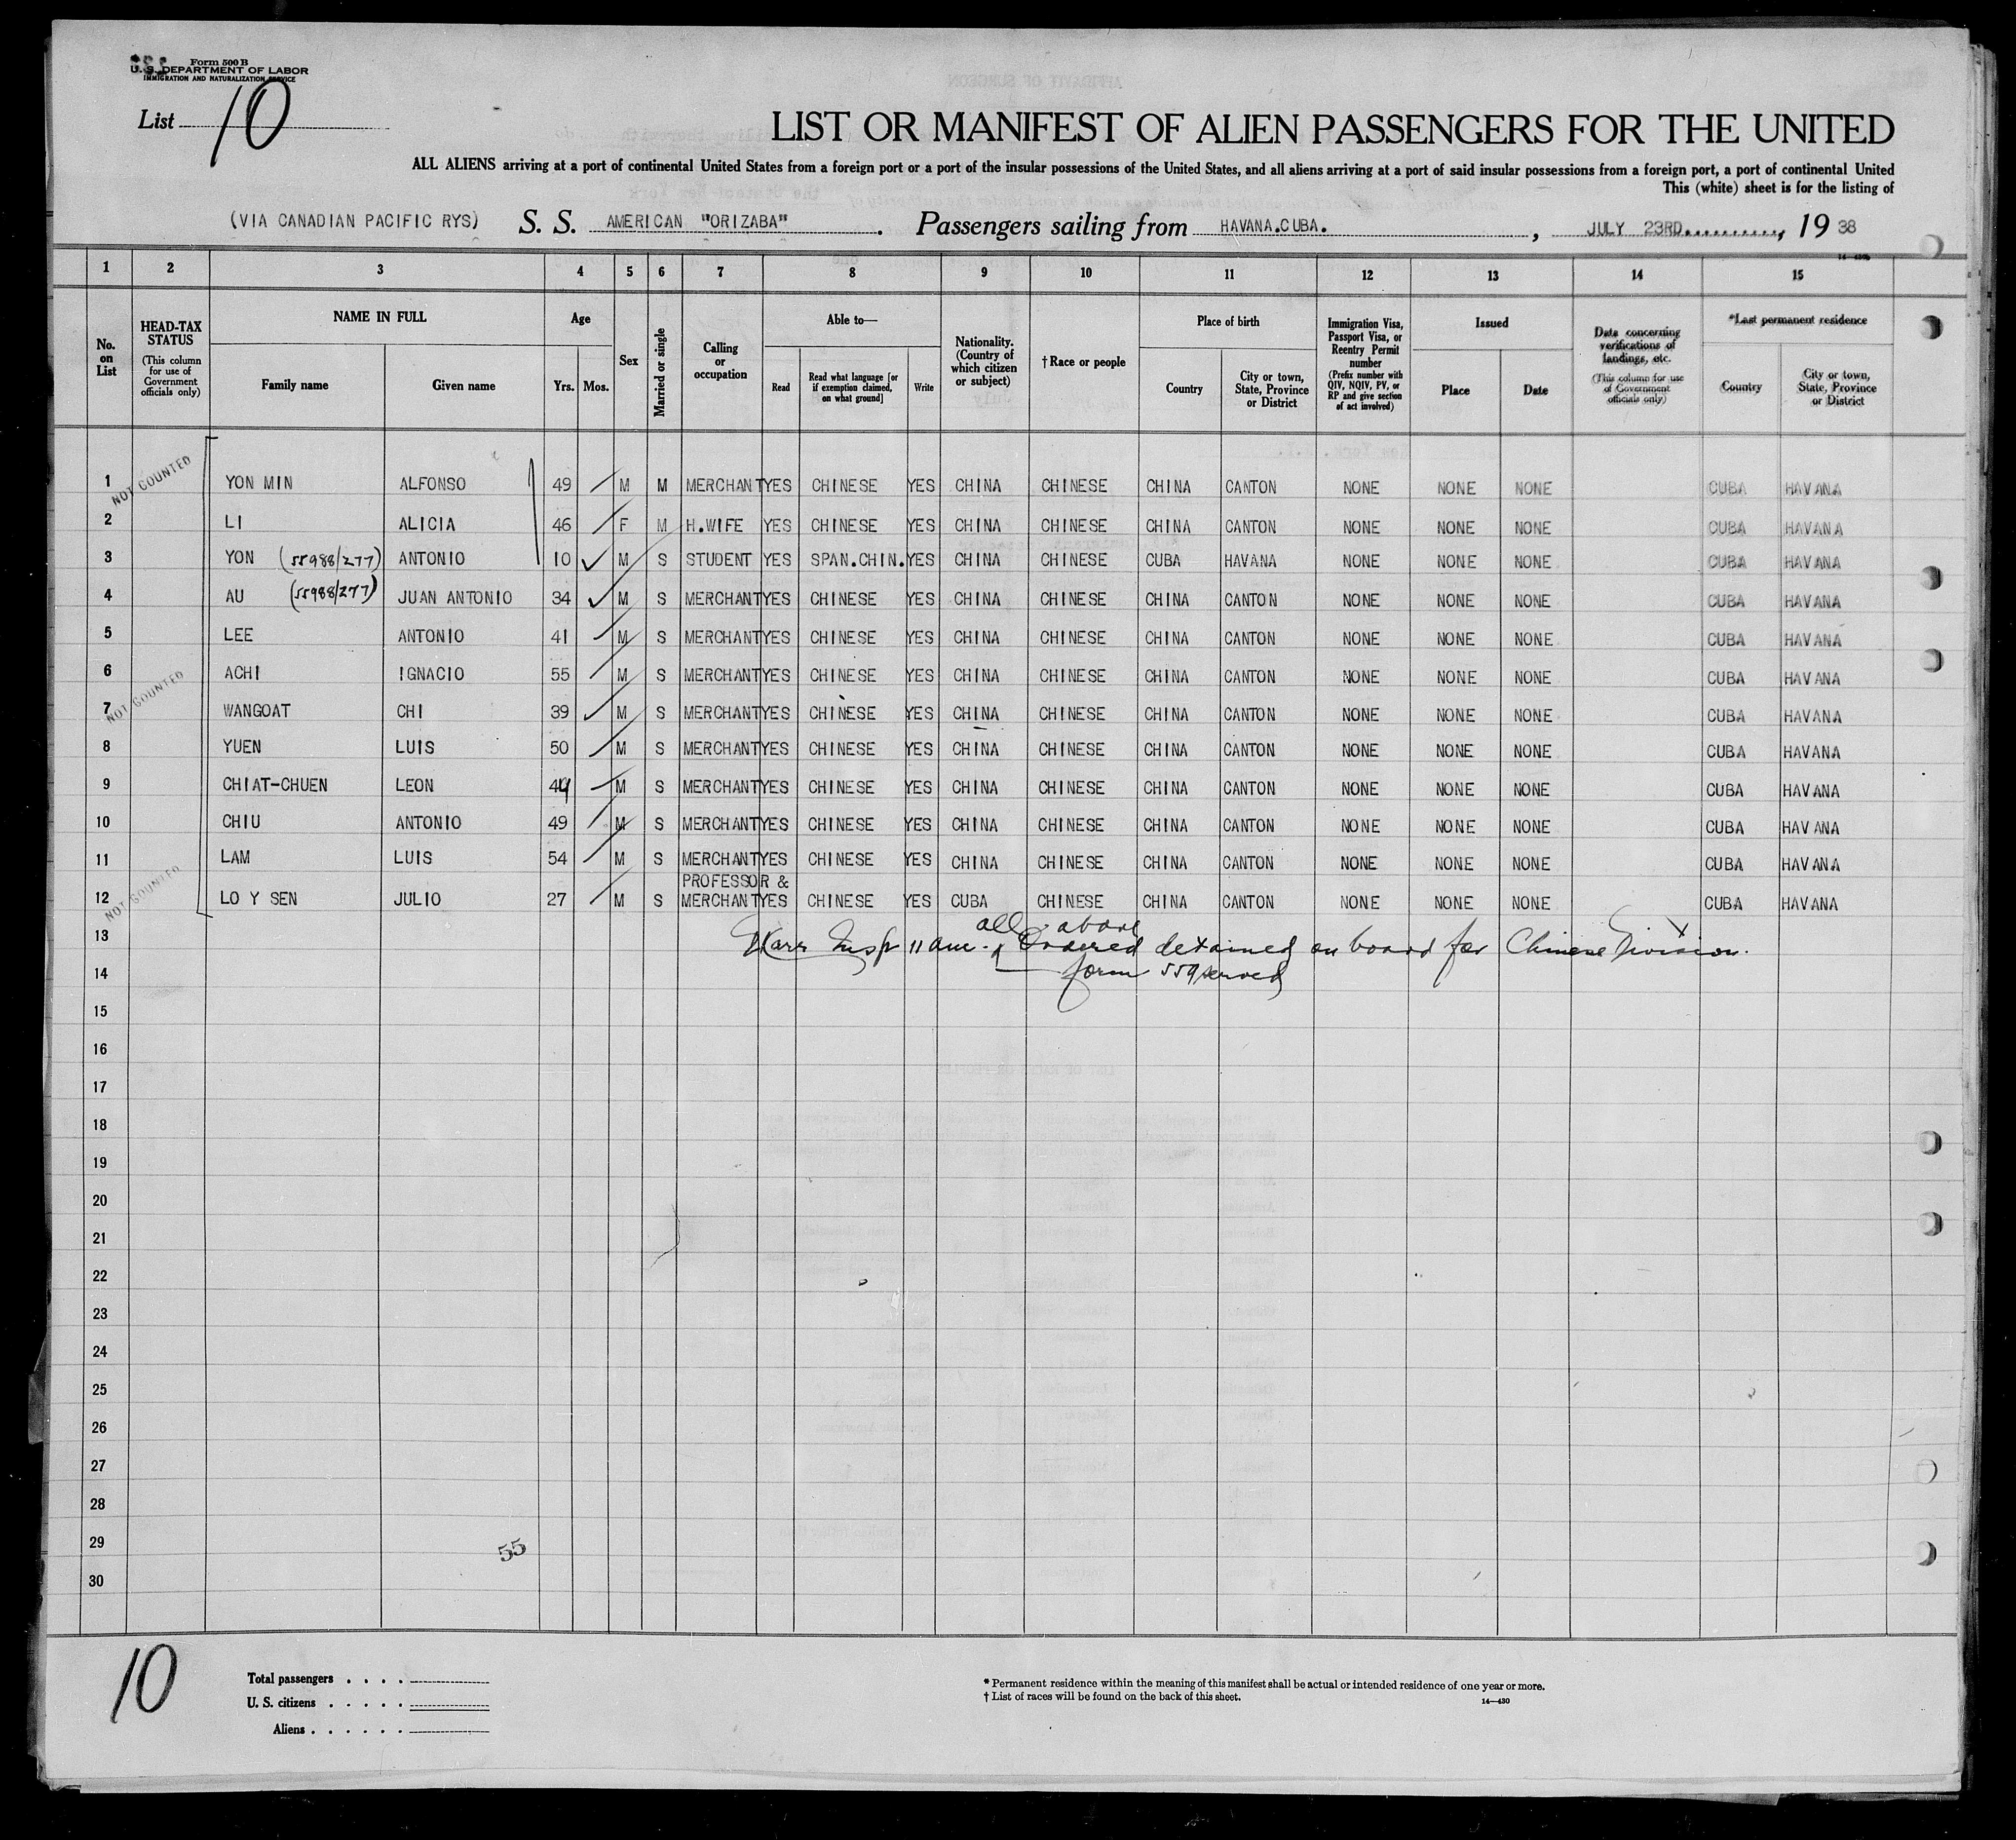 Form 500 B
U. S. DEPARTMENT OF LABOR
IMMIGRATION AND NATURALIZATION SERVICE
List 10
LIST OR MANIFEST OF ALIEN PASSENGERS FOR THE UNITED
ALL ALIENS arriving at a port of continental United States from a foreign port or a port of the insular possessions of the United States, and all aliens arriving at a port of said insular possessions from a foreign port, a port of continental United
This (white) sheet is for the listing of
(VIA CANADIAN PACIFIC RYS) S. S. AMERICAN "ORIZABA". Passengers sailing from HAVANA.CUBA. , JULY 23RD..........., 19 38
1 2 3 4 5 6 7 8 9 10 11 12 13 14 15
No. on List
HEAD-TAX STATUS (This column for use of Government officials only)
NAME IN FULL
Family name Given name
Age
Yrs. Mos.
Sex
Married or single
Calling or occupation
Able to—
Read Read what language [or if exemption claimed, on what ground] Write
Nationality. (Country of which citizen or subject)
† Race or people
Place of birth
Country City or town, State, Province or District
Immigration Visa, Passport Visa, or Reentry Permit number (Prefix number with QIV, NQIV, PV, or RP and give section of act involved)
Issued
Place Date
Data concerning verifications of landings, etc. (This column for use of Government officials only)
*Last permanent residence
Country City or town, State, Province or District
NOT COUNTED
1 YON MIN ALFONSO 49 M M MERCHANT YES CHINESE YES CHINA CHINESE CHINA CANTON NONE NONE NONE CUBA HAVANA
2 LI ALICIA 46 F M H.WIFE YES CHINESE YES CHINA CHINESE CHINA CANTON NONE NONE NONE CUBA HAVANA
3 YON (55988/277) ANTONIO 10 M S STUDENT YES SPAN.CHIN. YES CHINA CHINESE CUBA HAVANA NONE NONE NONE CUBA HAVANA
4 AU (55988/277) JUAN ANTONIO 34 M S MERCHANT YES CHINESE YES CHINA CHINESE CHINA CANTON NONE NONE NONE CUBA HAVANA
5 LEE ANTONIO 41 M S MERCHANT YES CHINESE YES CHINA CHINESE CHINA CANTON NONE NONE NONE CUBA HAVANA
6 ACHI IGNACIO 55 M S MERCHANT YES CHINESE YES CHINA CHINESE CHINA CANTON NONE NONE NONE CUBA HAVANA
NOT COUNTED
7 WANGOAT CHI 39 M S MERCHANT YES CHINESE YES CHINA CHINESE CHINA CANTON NONE NONE NONE CUBA HAVANA
8 YUEN LUIS 50 M S MERCHANT YES CHINESE YES CHINA CHINESE CHINA CANTON NONE NONE NONE CUBA HAVANA
9 CHIAT-CHUEN LEON 44 M S MERCHANT YES CHINESE YES CHINA CHINESE CHINA CANTON NONE NONE NONE CUBA HAVANA
10 CHIU ANTONIO 49 M S MERCHANT YES CHINESE YES CHINA CHINESE CHINA CANTON NONE NONE NONE CUBA HAVANA
11 LAM LUIS 54 M S MERCHANT YES CHINESE YES CHINA CHINESE CHINA CANTON NONE NONE NONE CUBA HAVANA
PROFESSOR &
12 LO Y SEN JULIO 27 M S MERCHANT YES CHINESE YES CUBA CHINESE CHINA CANTON NONE NONE NONE CUBA HAVANA
NOT COUNTED
all above
13 Insp 11 am. Ordered detained on board for Chinese Division.
14 form 559 served
15
16
17
18
19
20
21
22
23
24
25
26
27
28
29
55
30
10
Total passengers . . . .
U. S. citizens . . . . .
Aliens . . . . . .
* Permanent residence within the meaning of this manifest shall be actual or intended residence of one year or more.
† List of races will be found on the back of this sheet.
14—430